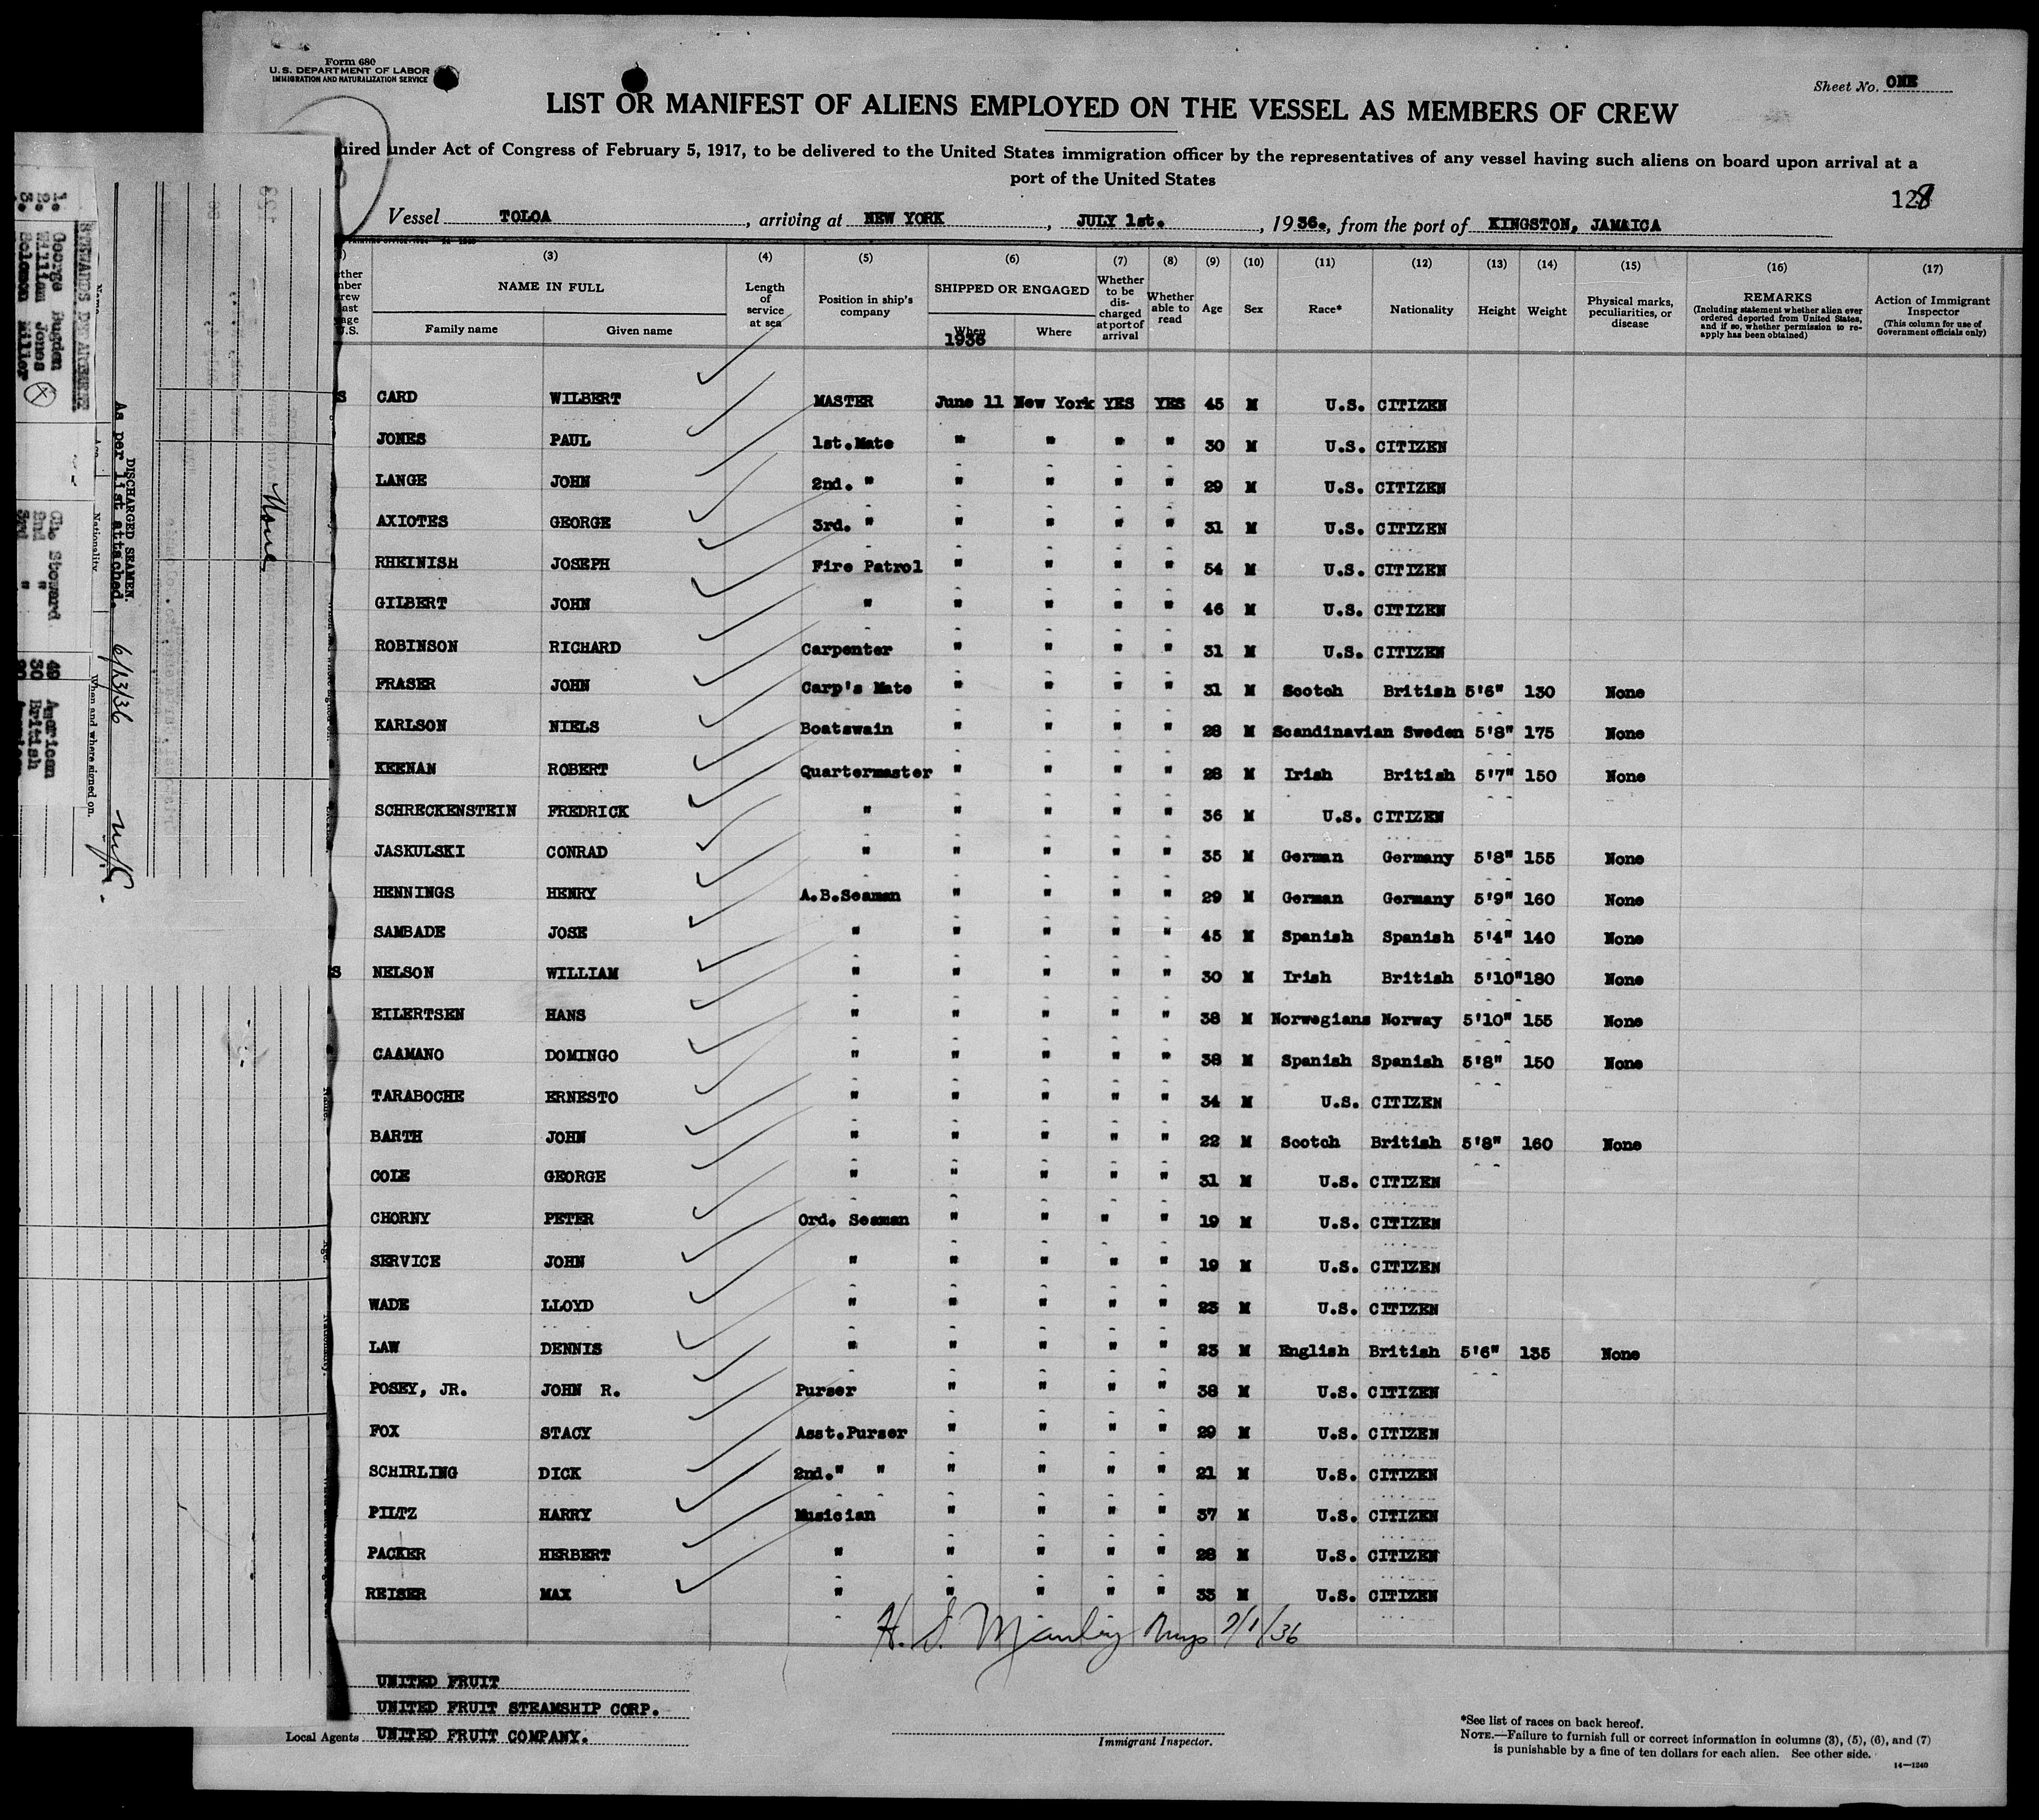 Form 680
U.S. DEPARTMENT OF LABOR
IMMIGRATION AND NATURALIZATION SERVICE
Sheet No. ONE
LIST OR MANIFEST OF ALIENS EMPLOYED ON THE VESSEL AS MEMBERS OF CREW
uired under Act of Congress of February 5, 1917, to be delivered to the United States immigration officer by the representatives of any vessel having such aliens on board upon arrival at a
port of the United States
128
Vessel TOLOA, arriving at NEW YORK, JULY 1st., 1936., from the port of KINGSTON, JAMAICA
(3) (4) (5) (6) (7) (8) (9) (10) (11) (12) (13) (14) (15) (16) (17)
NAME IN FULL
Family name Given name
Length of service at sea
Position in ship's company
SHIPPED OR ENGAGED
When Where
1936
Whether to be discharged at port of arrival
Whether able to read
Age Sex Race* Nationality Height Weight
Physical marks, peculiarities, or disease
REMARKS
(Including statement whether alien ever ordered deported from United States, and if so, whether permission to reapply has been obtained)
Action of Immigrant Inspector
(This column for use of Government officials only)
S CARD WILBERT MASTER June 11 New York YES YES 45 M U.S. CITIZEN
JONES PAUL 1st.Mate " " " " 30 M U.S. CITIZEN
LANGE JOHN 2nd. " " " " " 29 M U.S. CITIZEN
AXIOTES GEORGE 3rd. " " " " " 31 M U.S. CITIZEN
RHEINISH JOSEPH Fire Patrol " " " " 54 M U.S. CITIZEN
GILBERT JOHN " " " " " 46 M U.S. CITIZEN
ROBINSON RICHARD Carpenter " " " " 31 M U.S. CITIZEN
FRASER JOHN Carp's Mate " " " " 31 M Scotch British 5'6" 130 None
KARLSON NIELS Boatswain " " " " 28 M Scandinavian Sweden 5'8" 175 None
KEENAN ROBERT Quartermaster " " " " 28 M Irish British 5'7" 150 None
SCHRECKENSTEIN FREDRICK " " " " " 36 M U.S. CITIZEN
JASKULSKI CONRAD " " " " " 35 M German Germany 5'8" 155 None
HENNINGS HENRY A.B.Seaman " " " " 29 M German Germany 5'9" 160 None
SAMBADE JOSE " " " " " 45 M Spanish Spanish 5'4" 140 None
S NELSON WILLIAM " " " " " 30 M Irish British 5'10" 180 None
EILERTSEN HANS " " " " " 38 M Norwegians Norway 5'10" 155 None
CAAMANO DOMINGO " " " " " 38 M Spanish Spanish 5'8" 150 None
TARABOCHE ERNESTO " " " " " 34 M U.S. CITIZEN
BARTH JOHN " " " " " 22 M Scotch British 5'8" 160 None
COLE GEORGE " " " " " 31 M U.S. CITIZEN
CHORNY PETER Ord. Seaman " " " " 19 M U.S. CITIZEN
SERVICE JOHN " " " " " 19 M U.S. CITIZEN
WADE LLOYD " " " " " 23 M U.S. CITIZEN
LAW DENNIS " " " " " 23 M English British 5'6" 135 None
POSEY, JR. JOHN R. Purser " " " " 38 M U.S. CITIZEN
FOX STACY Asst.Purser " " " " 29 M U.S. CITIZEN
SCHIRLING DICK 2nd." " " " " " 21 M U.S. CITIZEN
PILTZ HARRY Musician " " " " 37 M U.S. CITIZEN
PACKER HERBERT " " " " " 28 M U.S. CITIZEN
REISER MAX " " " " " 33 M U.S. CITIZEN
H. S. 7/1/36
UNITED FRUIT
UNITED FRUIT STEAMSHIP CORP.
Local Agents UNITED FRUIT COMPANY.
Immigrant Inspector.
*See list of races on back hereof.
NOTE.—Failure to furnish full or correct information in columns (3), (5), (6), and (7)
is punishable by a fine of ten dollars for each alien. See other side.
14—1240
STEWARDS DEPARTMENT
1. George Bugden Ch. Steward 49 American
2. William Jones 2nd " 30 British
3. Solomon Miller 3rd "
DISCHARGED SEAMEN.
As per list attached. 6/13/36
Nationality
When and where signed on.
None